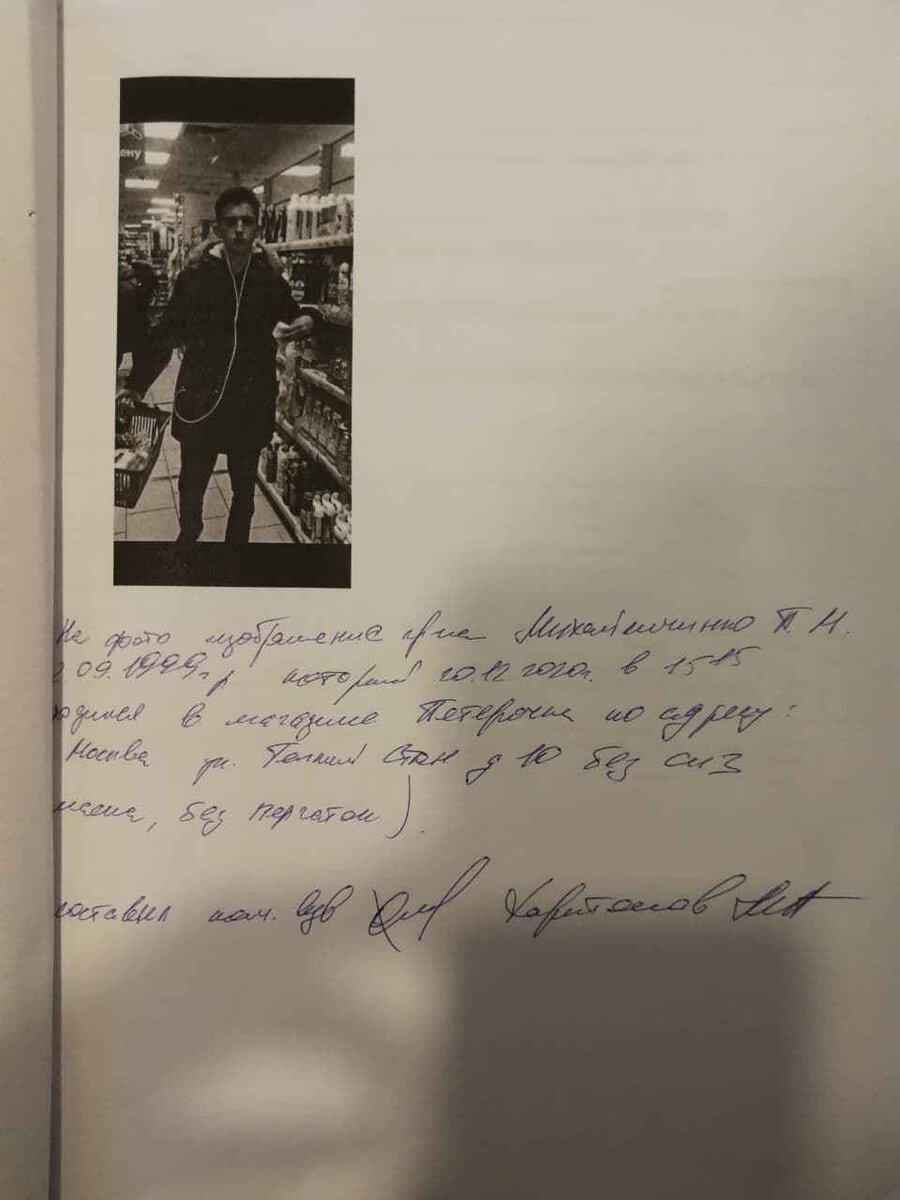 ену
На фото изображение гр-на Михайличенко П. Н.
.09.1999г.р который 20.12.2020г. в 15 15
одился в магазине Пятерочка по адресу:
Москва ул. Теплый Стан д 10 без сиз
маски, без перчаток).
составил пом. Харитонов